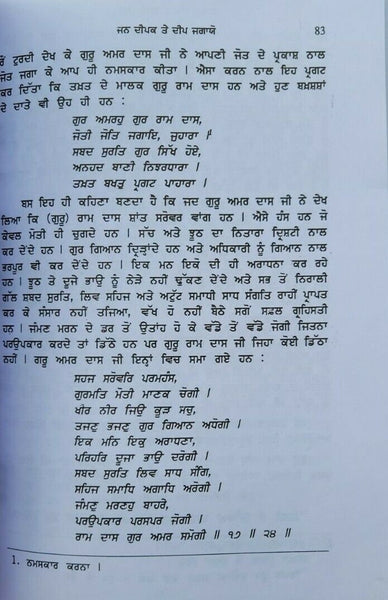 ਜਨ ਦੀਪਕ ਤੇ ਦੀਪ ਜਗਾਯੋ 83
ਰੁੜਦੀ ਦੇਖ ਕੇ ਗੁਰੂ ਅਮਰ ਦਾਸ ਜੀ ਨੇ ਆਪਣੀ ਜੋਤ ਦੇ ਪ੍ਰਕਾਸ਼ ਨਾਲ
ਜੋਤ ਜਗਾ ਕੇ ਆਪ ਹੀ ਨਮਸਕਾਰ ਕੀਤਾ । ਐਸਾ ਕਰਨ ਨਾਲ ਇਹ ਪ੍ਰਗਟ
ਕਰ ਦਿੱਤਾ ਕਿ ਤਖ਼ਤ ਦੇ ਮਾਲਕ ਗੁਰੂ ਰਾਮ ਦਾਸ ਹਨ ਅਤੇ ਹੁਣ ਬਖ਼ਸ਼ਸ਼ਾਂ
ਦੇ ਦਾਤੇ ਵੀ ਉਹ ਹੀ ਹਨ :
ਗੁਰ ਅਮਰਹੁ ਗੁਰ ਰਾਮ ਦਾਸ,
ਜੋਤੀ ਜੋਤਿ ਜਗਾਇ, ਜੁਹਾਰਾ ।¹
ਸਬਦ ਸੁਰਤਿ ਗੁਰ ਸਿਖੁ ਹੋਏ,
ਅਨਹਦ ਬਾਣੀ ਨਿਝਰਧਾਰਾ ।
ਤਖ਼ਤੁ ਬਖ਼ਤੁ ਪ੍ਰਗਟ ਪਾਹਾਰਾ ।
ਬਸ ਇਹ ਹੀ ਕਹਿਣਾ ਬਣਦਾ ਹੈ ਕਿ ਜਦ ਗੁਰੂ ਅਮਰ ਦਾਸ ਜੀ ਨੇ ਦੇਖ
ਲਿਆ ਕਿ (ਗੁਰੂ) ਰਾਮ ਦਾਸ ਸ਼ਾਂਤ ਸਰੋਵਰ ਵਾਂਗ ਹਨ । ਐਸੇ ਹੰਸ ਹਨ ਜੋ
ਕੇਵਲ ਮੋਤੀ ਹੀ ਚੁਗਦੇ ਹਨ । ਸੱਚ ਅਤੇ ਝੂਠ ਦਾ ਨਿਤਾਰਾ ਦ੍ਰਿਸ਼ਟੀ ਨਾਲ
ਕਰ ਦੇਂਦੇ ਹਨ । ਗੁਰ ਗਿਆਨ ਦ੍ਰਿੜਾਂਦੇ ਹਨ ਅਤੇ ਅਧਿਕਾਰੀ ਨੂੰ ਗਿਆਨ ਨਾਲ
ਭਰਪੂਰ ਵੀ ਕਰ ਦੇਂਦੇ ਹਨ । ਇਕ ਮਨ ਇਕੋ ਦੀ ਹੀ ਅਰਾਧਨਾ ਕਰ ਰਹੇ
ਹਨ । ਝੂਠ ਤੇ ਦੂਜੇ ਭਾਉ ਨੂੰ ਨੇੜੇ ਨਹੀਂ ਢੁੱਕਣ ਦੇਂਦੇ ਅਤੇ ਸਭ ਤੋਂ ਨਿਰਾਲੀ
ਗੱਲ ਸ਼ਬਦ ਸੁਰਤਿ, ਲਿਵ ਸਹਿਜ ਅਤੇ ਅਟੁੱਟ ਸਮਾਧੀ ਸਾਧ ਸੰਗਤਿ ਰਾਹੀਂ ਪ੍ਰਾਪਤ
ਕਰ ਕੇ ਸੰਸਾਰ ਨਹੀਂ ਤਜਿਆ, ਵੱਖ ਹੋ ਨਹੀਂ ਬੈਠੇ ਸਗੋਂ ਸਫ਼ਲ ਗ੍ਰਹਿਸਤੀ
ਹਨ । ਜੰਮਣ ਮਰਨ ਦੇ ਡਰ ਤੋਂ ਉਤਾਂਹ ਹੋ ਕੇ ਵੱਡੇ ਤੋਂ ਵੱਡੇ ਜੋਗੀ ਜਿਤਨਾ
ਪਰਉਪਕਾਰ ਕਰਦੇ ਤਾਂ ਡਿੱਠੇ ਹਨ ਪਰ ਗੁਰੂ ਰਾਮ ਦਾਸ ਜੀ ਜਿਹਾ ਕੋਈ ਡਿੱਠਾ
ਨਹੀਂ । ਗਰੂ ਅਮਰ ਦਾਸ ਜੀ ਇਨ੍ਹਾਂ ਵਿਚ ਸਮਾ ਗਏ ਹਨ :
ਸਹਜ ਸਰੋਵਰਿ ਪਰਮਹੰਸ,
ਗੁਰਮਤਿ ਮੋਤੀ ਮਾਣਕ ਚੋਗੀ ।
ਖੀਰ ਨੀਰ ਜਿਉਂ ਕੂੜ ਸਚੁ,
ਤਜਣੁ ਭਜਣੁ ਗੁਰ ਗਿਆਨ ਅਧੋਗੀ ।
ਇਕ ਮਨਿ ਇਕੁ ਅਰਾਧਣਾ,
ਪਰਿਹਰਿ ਦੂਜਾ ਭਾਉ ਦਰੋਗੀ ।
ਸਬਦ ਸੁਰਤਿ ਲਿਵ ਸਾਧ ਸੰਗਿ,
ਸਹਿਜ ਸਮਾਧਿ ਅਗਾਧਿ ਅਰੋਗੀ ।
ਜੰਮਣੁ ਮਰਣਹੁ ਬਾਹਰੇ,
ਪਰਉਪਕਾਰ ਪਰਸਪਰ ਜੋਗੀ ।
ਰਾਮ ਦਾਸ ਗੁਰ ਅਮਰ ਸਮੋਗੀ ॥ ੧੭ ॥ ੨੪ ॥
1. ਨਮਸਕਾਰ ਕਰਨਾ ।